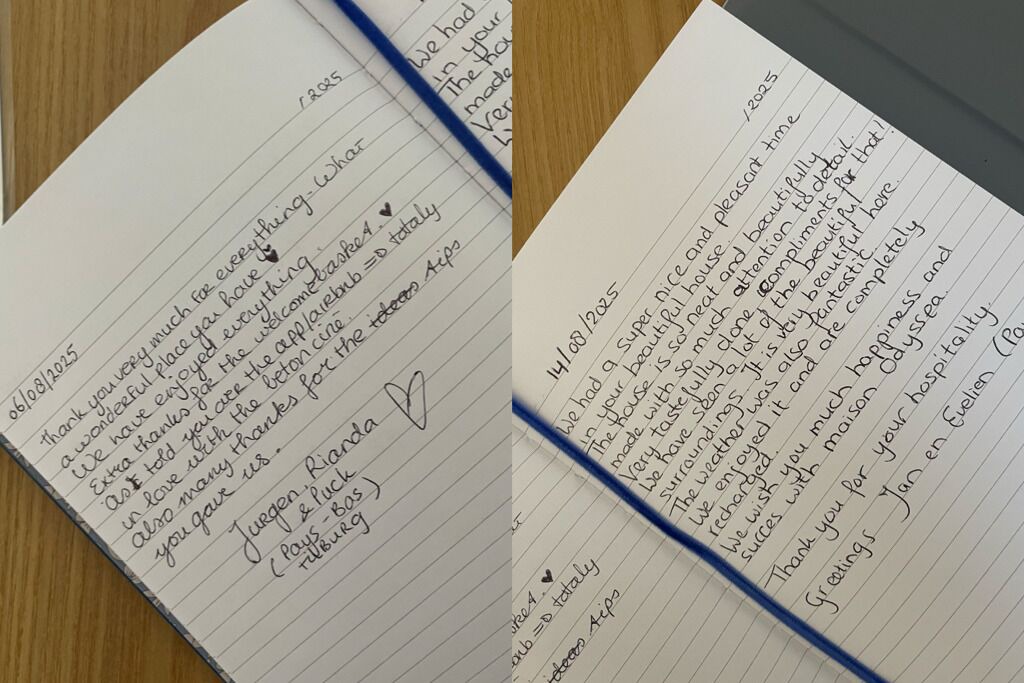 06/08/2025
/2025
Thank you very much for everything - What
a wonderful place you have
We have enjoyed everything
Extra thanks for the welcome basket.
as told you over the app/airbnb = totaly
in love with the beton cire.
also many thanks for the ideas tips
you gave us.
Juergen, Rianda
& Puck
(Pays-Bas)
Tilburg
We had
in your
The hou
made
Very
14/08/2025
/2025
We had a super nice and pleasant time
in your beautiful house
The house is so neat and beautifully
made with so much attention to detail.
Very tastefully done compliments for that!
We have seen a lot of the beautiful
surroundings. It is very beautiful here.
The weather was also fantastic
We enjoyed it and are completely
recharged.
We wish you much happiness and
succes with maison odyssea.
Thank you for your hospitality.
Greetings Jan en Evelien (Pa
asket.
onb = totaly
ideas tips